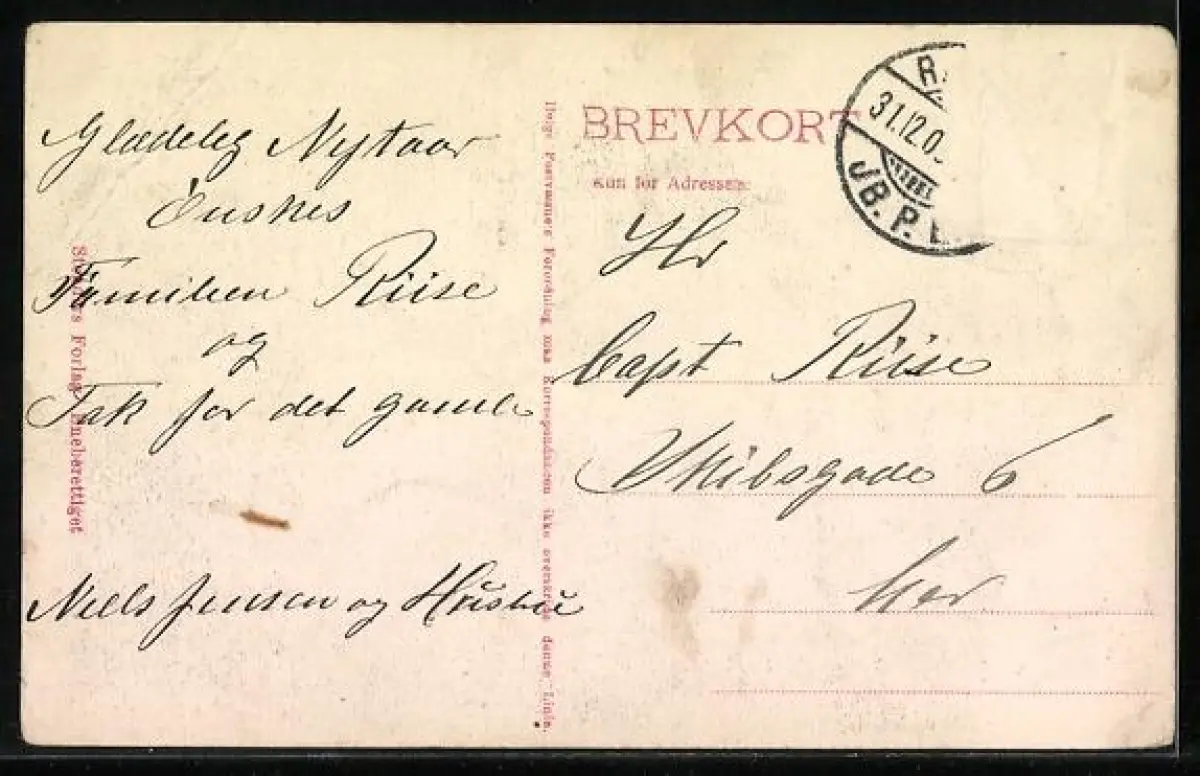 Glædelig Nytaar
Önskes
Familien Riise
og
Tak for det gamle
Niels Jensen og Hustru
Forlag Eneberettiget
Ifølge Postvæsenets Forordning maa Korrespondancen ikke overskride denne Linie.
BREVKORT
Kun for Adressen.
31.12.0
JB.P.E
Hr
Capt Riise
Skibsgade 6
her